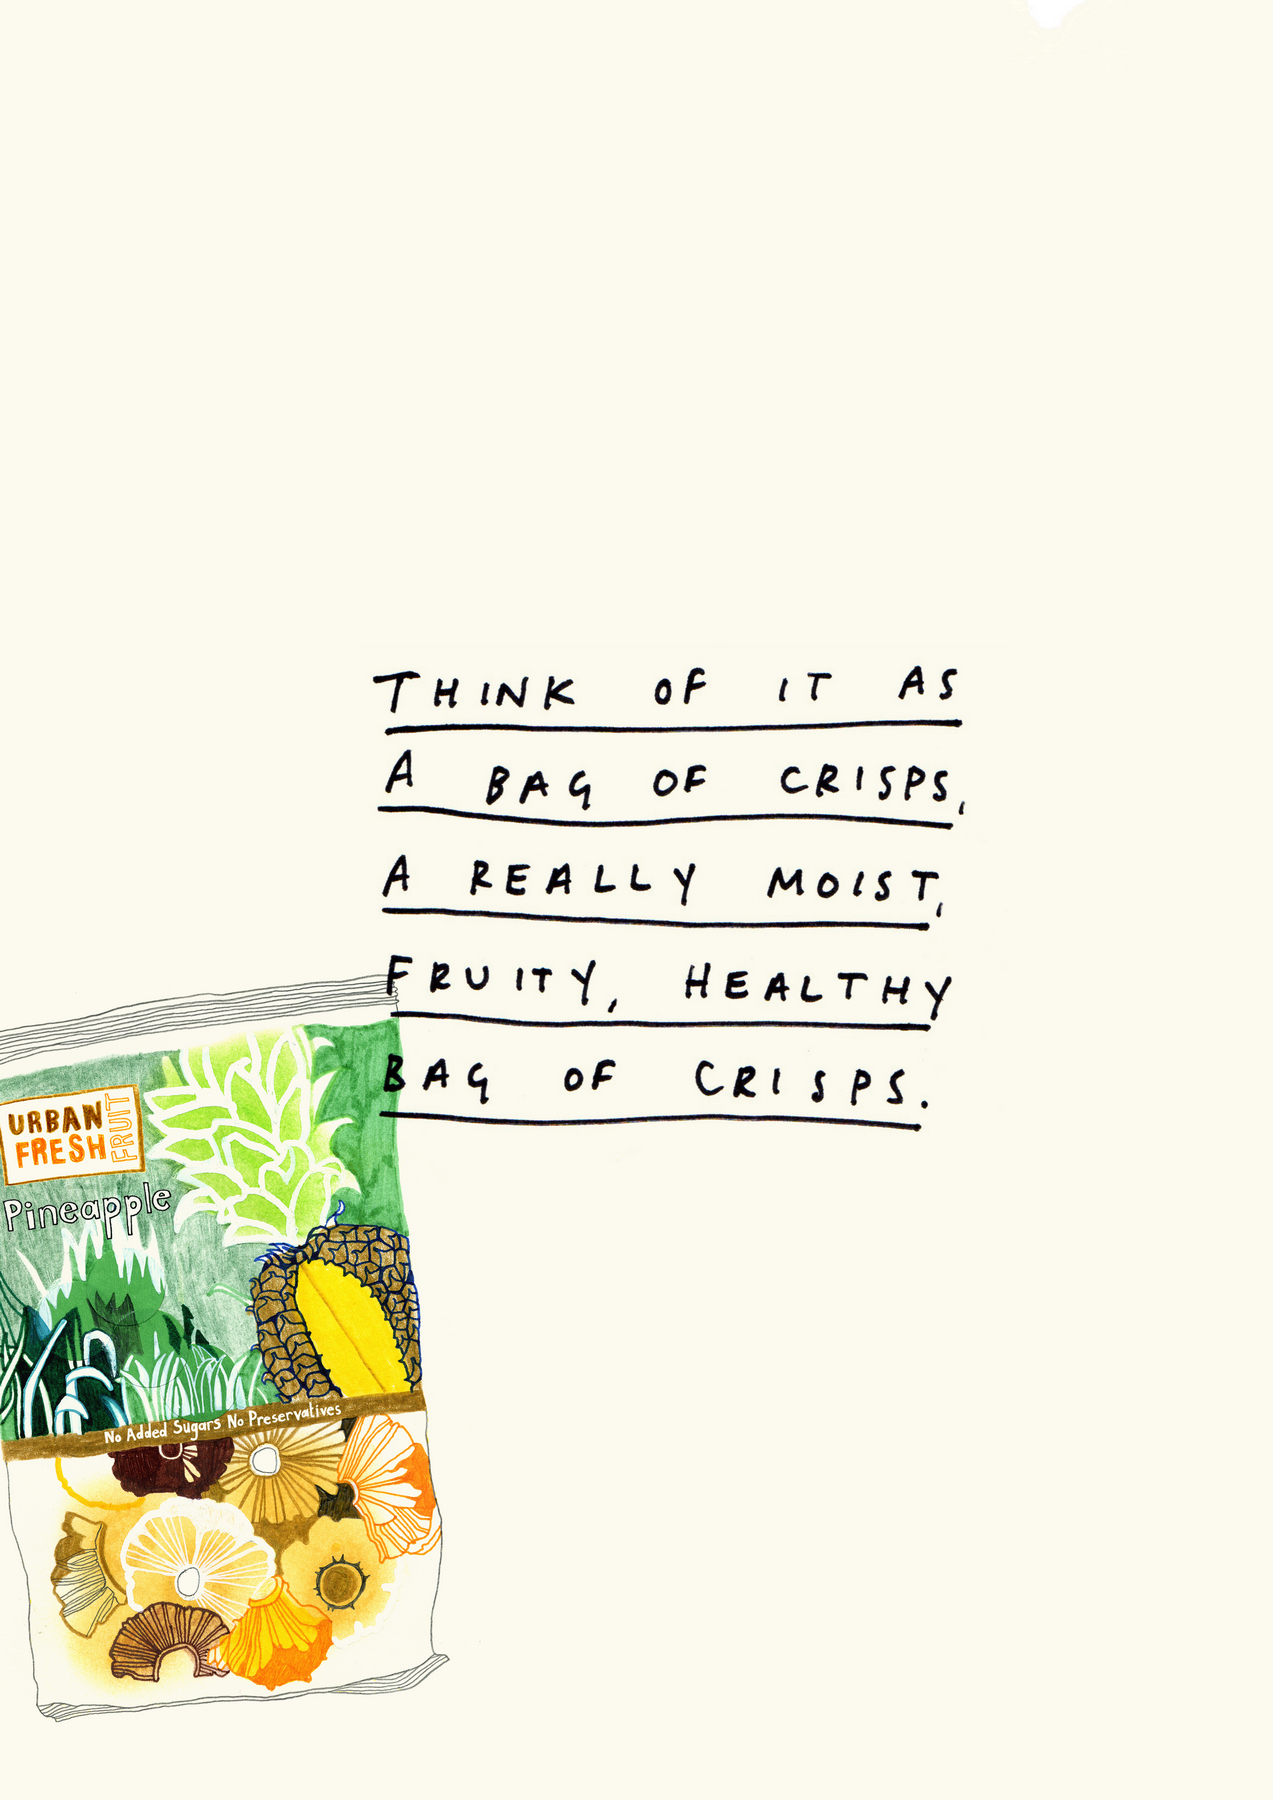 THINK OF IT AS
A BAG OF CRISPS,
A REALLY MOIST,
FRUITY, HEALTHY
BAG OF CRISPS.
URBAN
FRESH
FRUIT
Pineapple
No Added Sugars No Preservatives